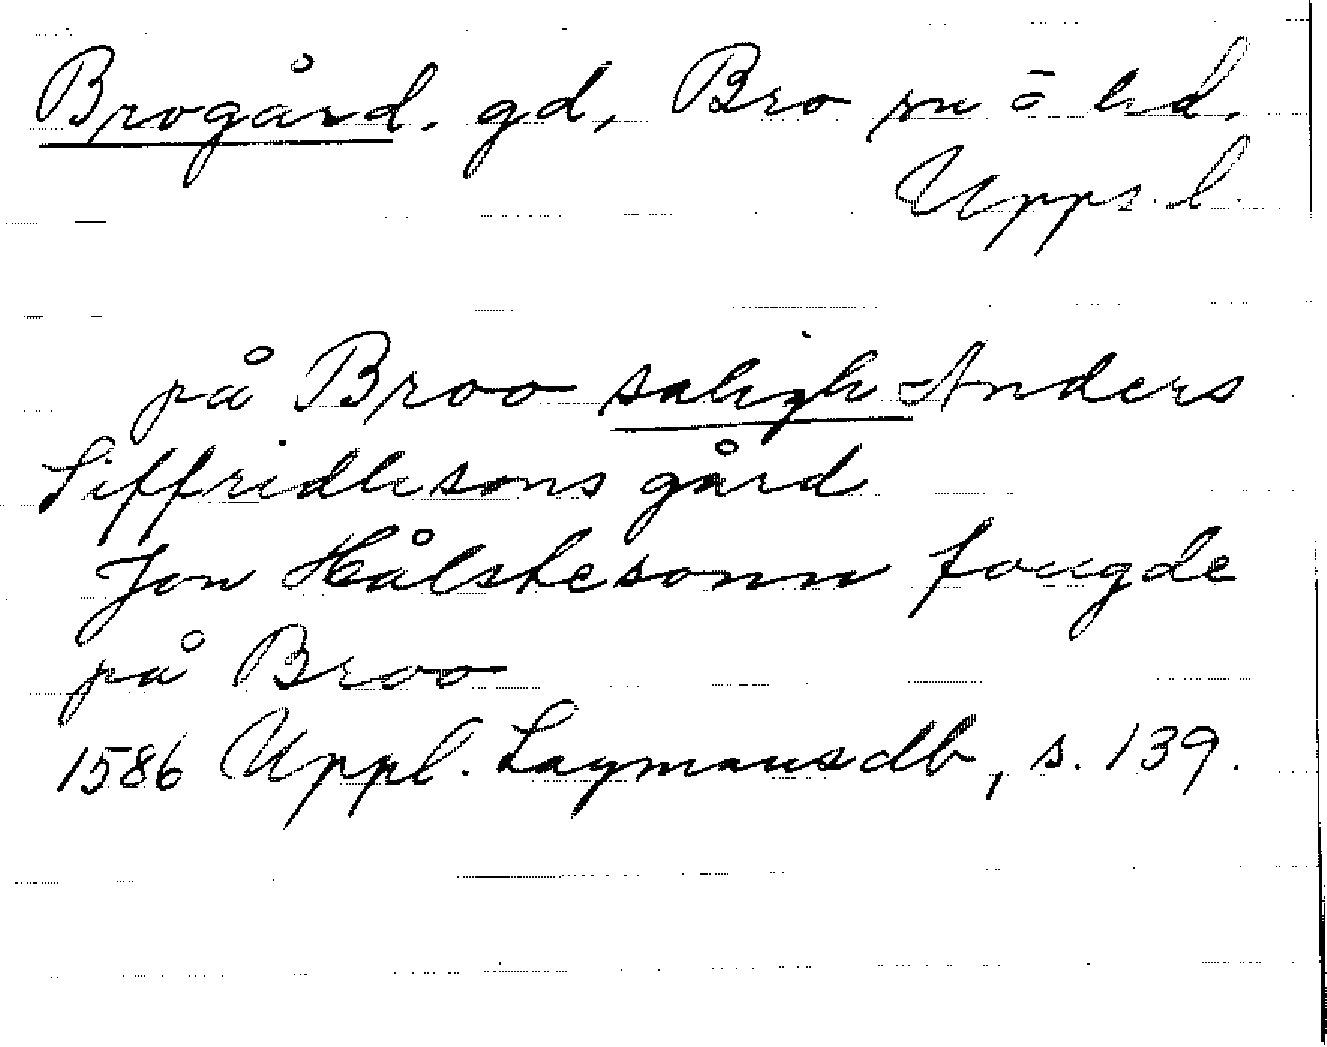 Brogård. gd, Bro sn o hd.
Upps. l.
på Broo saligh Anders
Siffridhsons gård
Jon Hålstesonn fougde
på Broo
1586 Uppl. Laymansdb, s. 139.